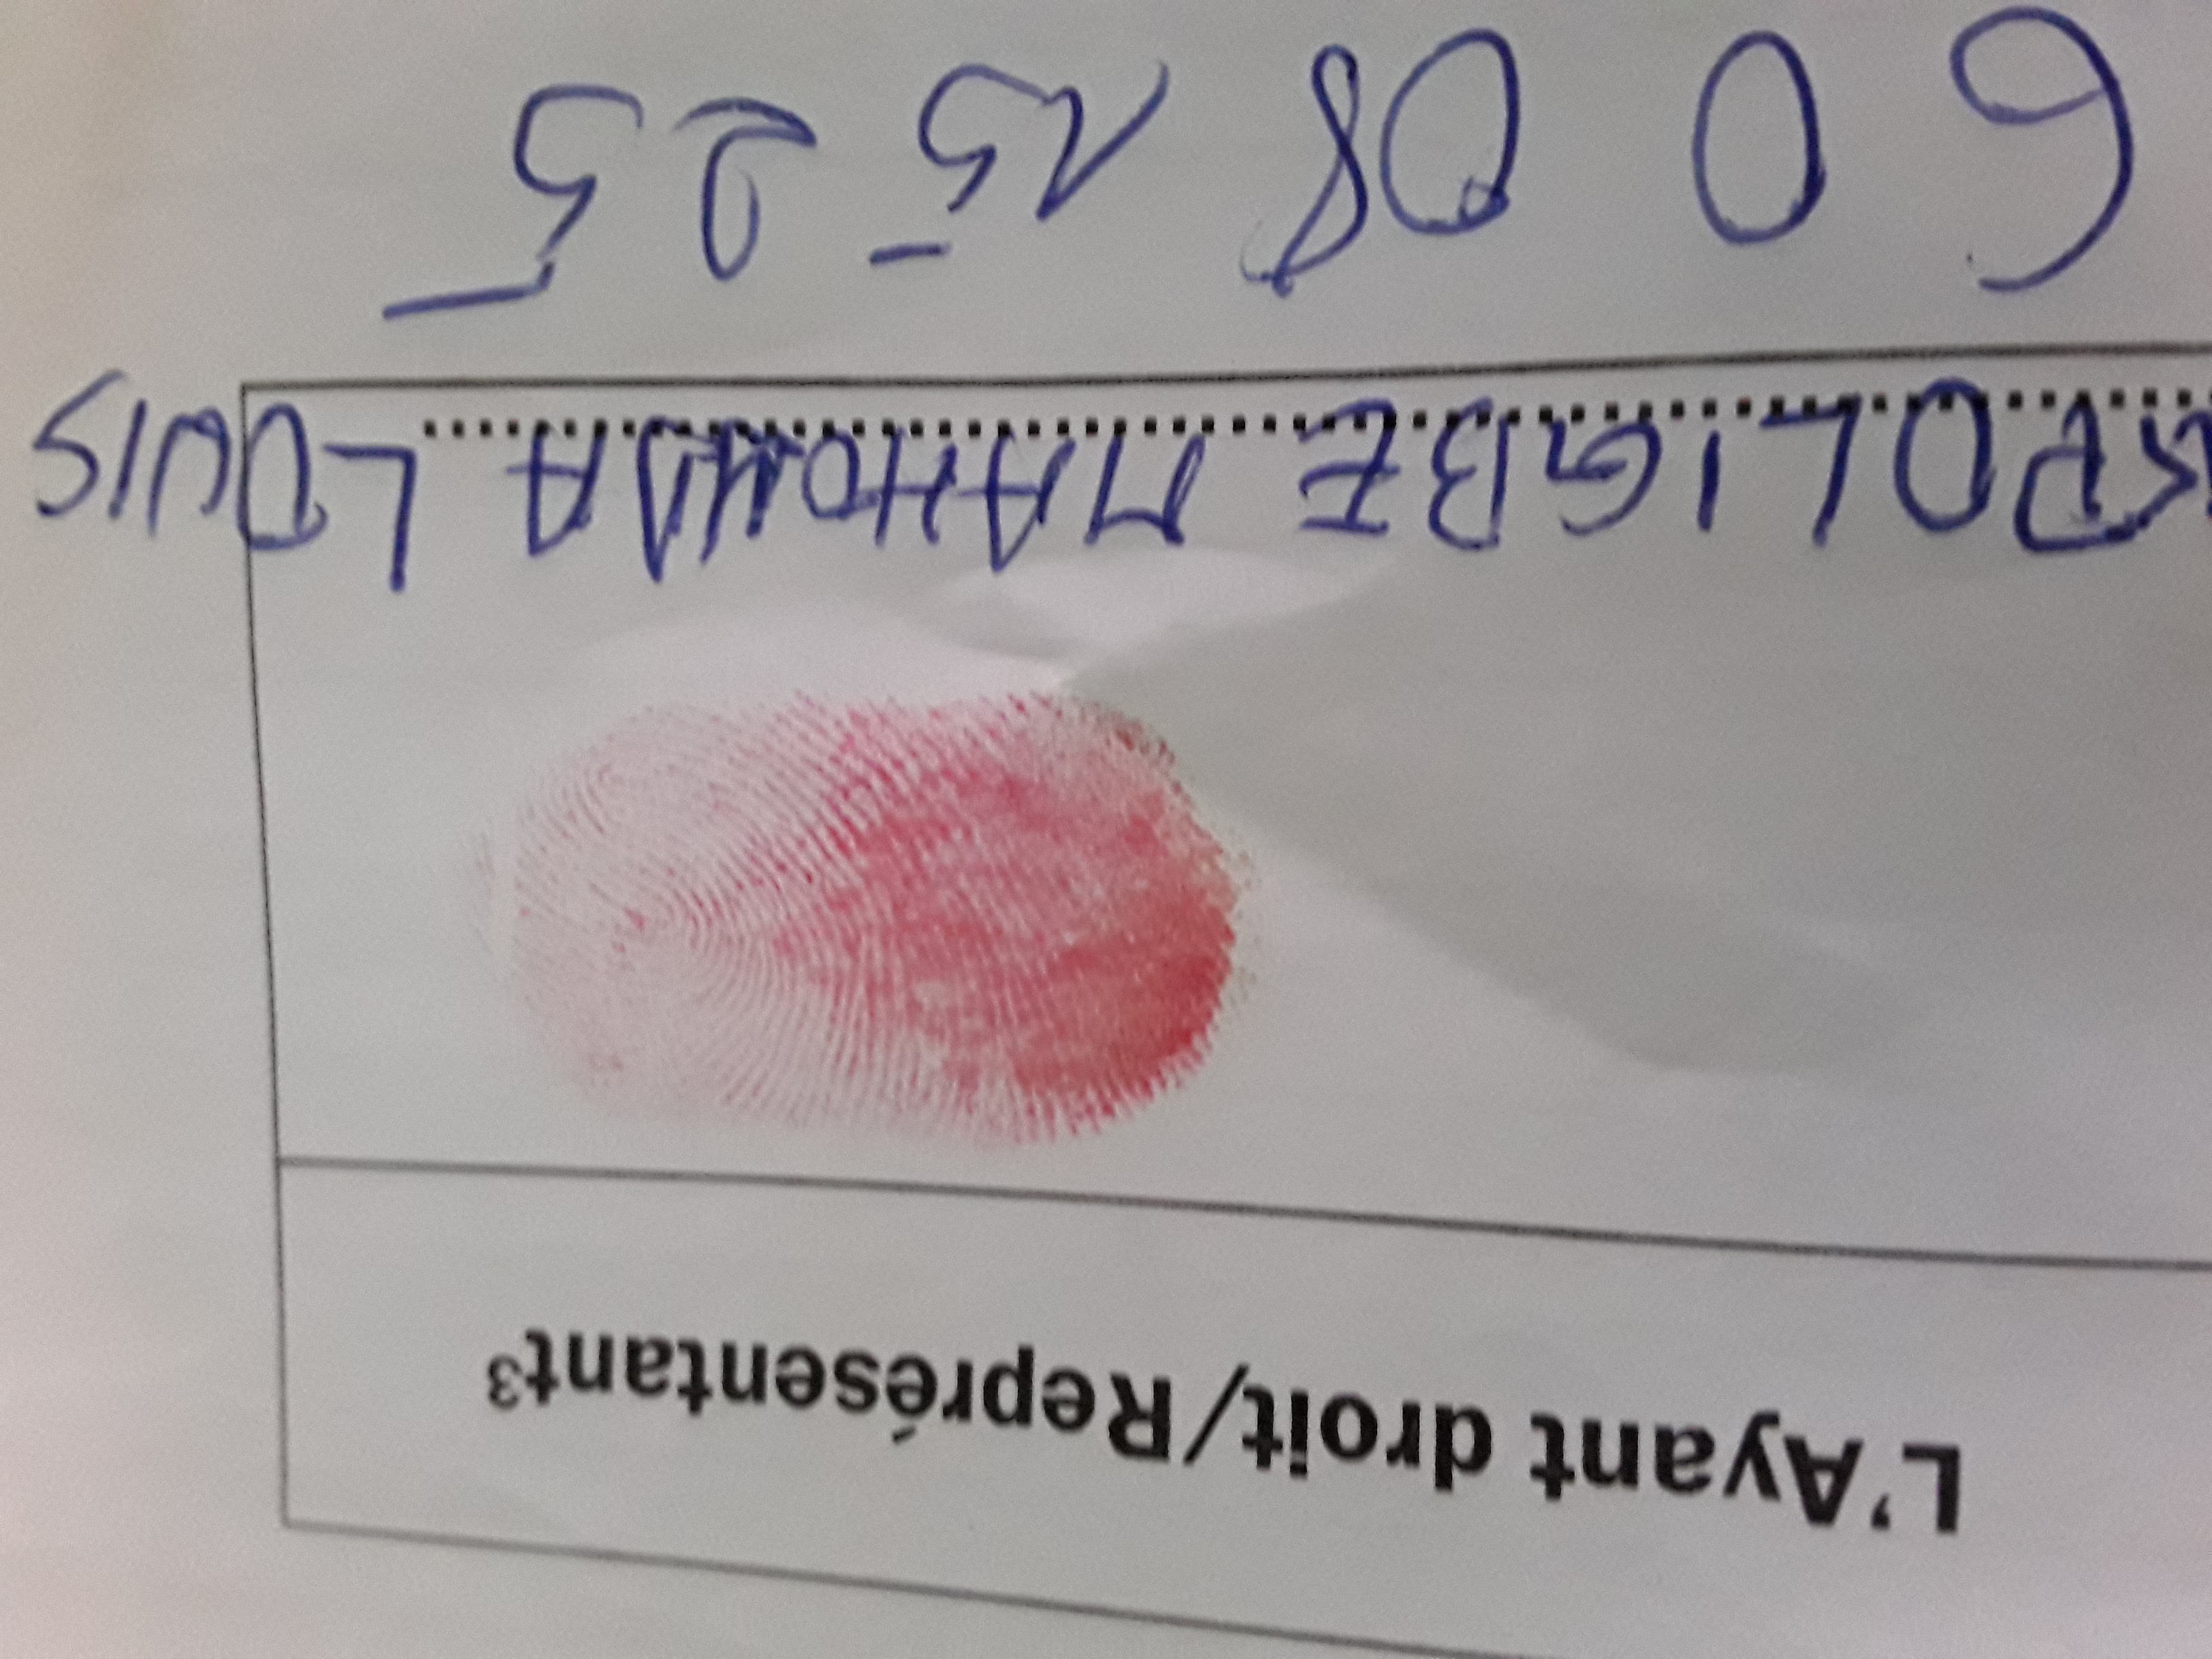 L'Ayant droit/Représentant³
POLIGBE MAHOUNA LOUIS
60 08 15 25